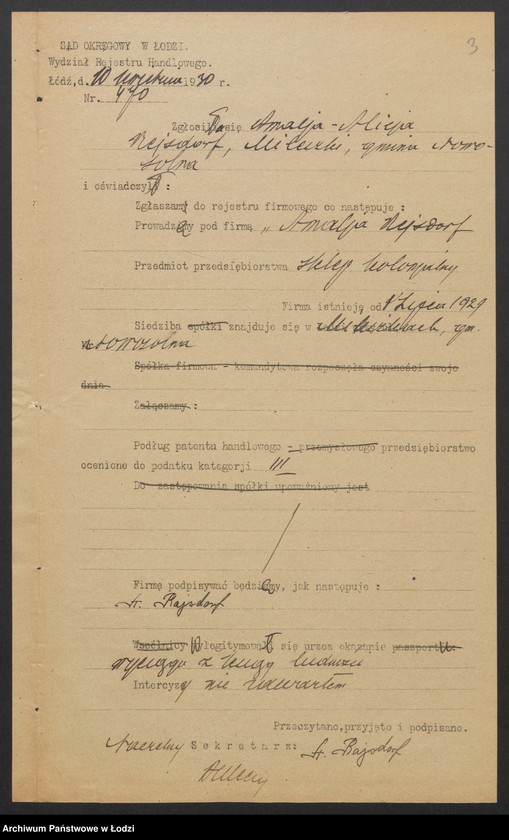 3
SĄD OKRĘGOWY W ŁODZI.
Wydział Rejestru Handlowego.
Łódź, d. 10 września 1930 r.
Nr. 470
Zgłosiła się Amalja-Alicja
Rejsdorf, Mileszki, gmina Nowo-
solna
i oświadczył :
Zgłaszam do rejestru firmowego co następuje :
Prowadzę pod firmą „Amalja Rejsdorf
Przedmiot przedsiębiorstwa sklep kolonjalny
Firma istnieje od 1 lipca 1929
Siedziba spółki znajduje się w Mileszkach, gm.
Nowosolna
Spółka firmowa - komandytowa rozpoczęła czynności swoje
dnia
Załączamy :
Podług patentu handlowego - przemysłowego przedsiębiorstwo
ocenione do podatku kategorji III
Do zastępowania spółki upoważniony jest
Firmę podpisywać będę, jak następuje :
A. Rajsdorf
Wspólnicy Wylegitymował się przez okazanie paszportu
wyciągu z ksiąg ludności
Intercyzy nie zawarłem
Przeczytano, przyjęto i podpisano.
Naczelny Sekretarz: A. Rajsdorf